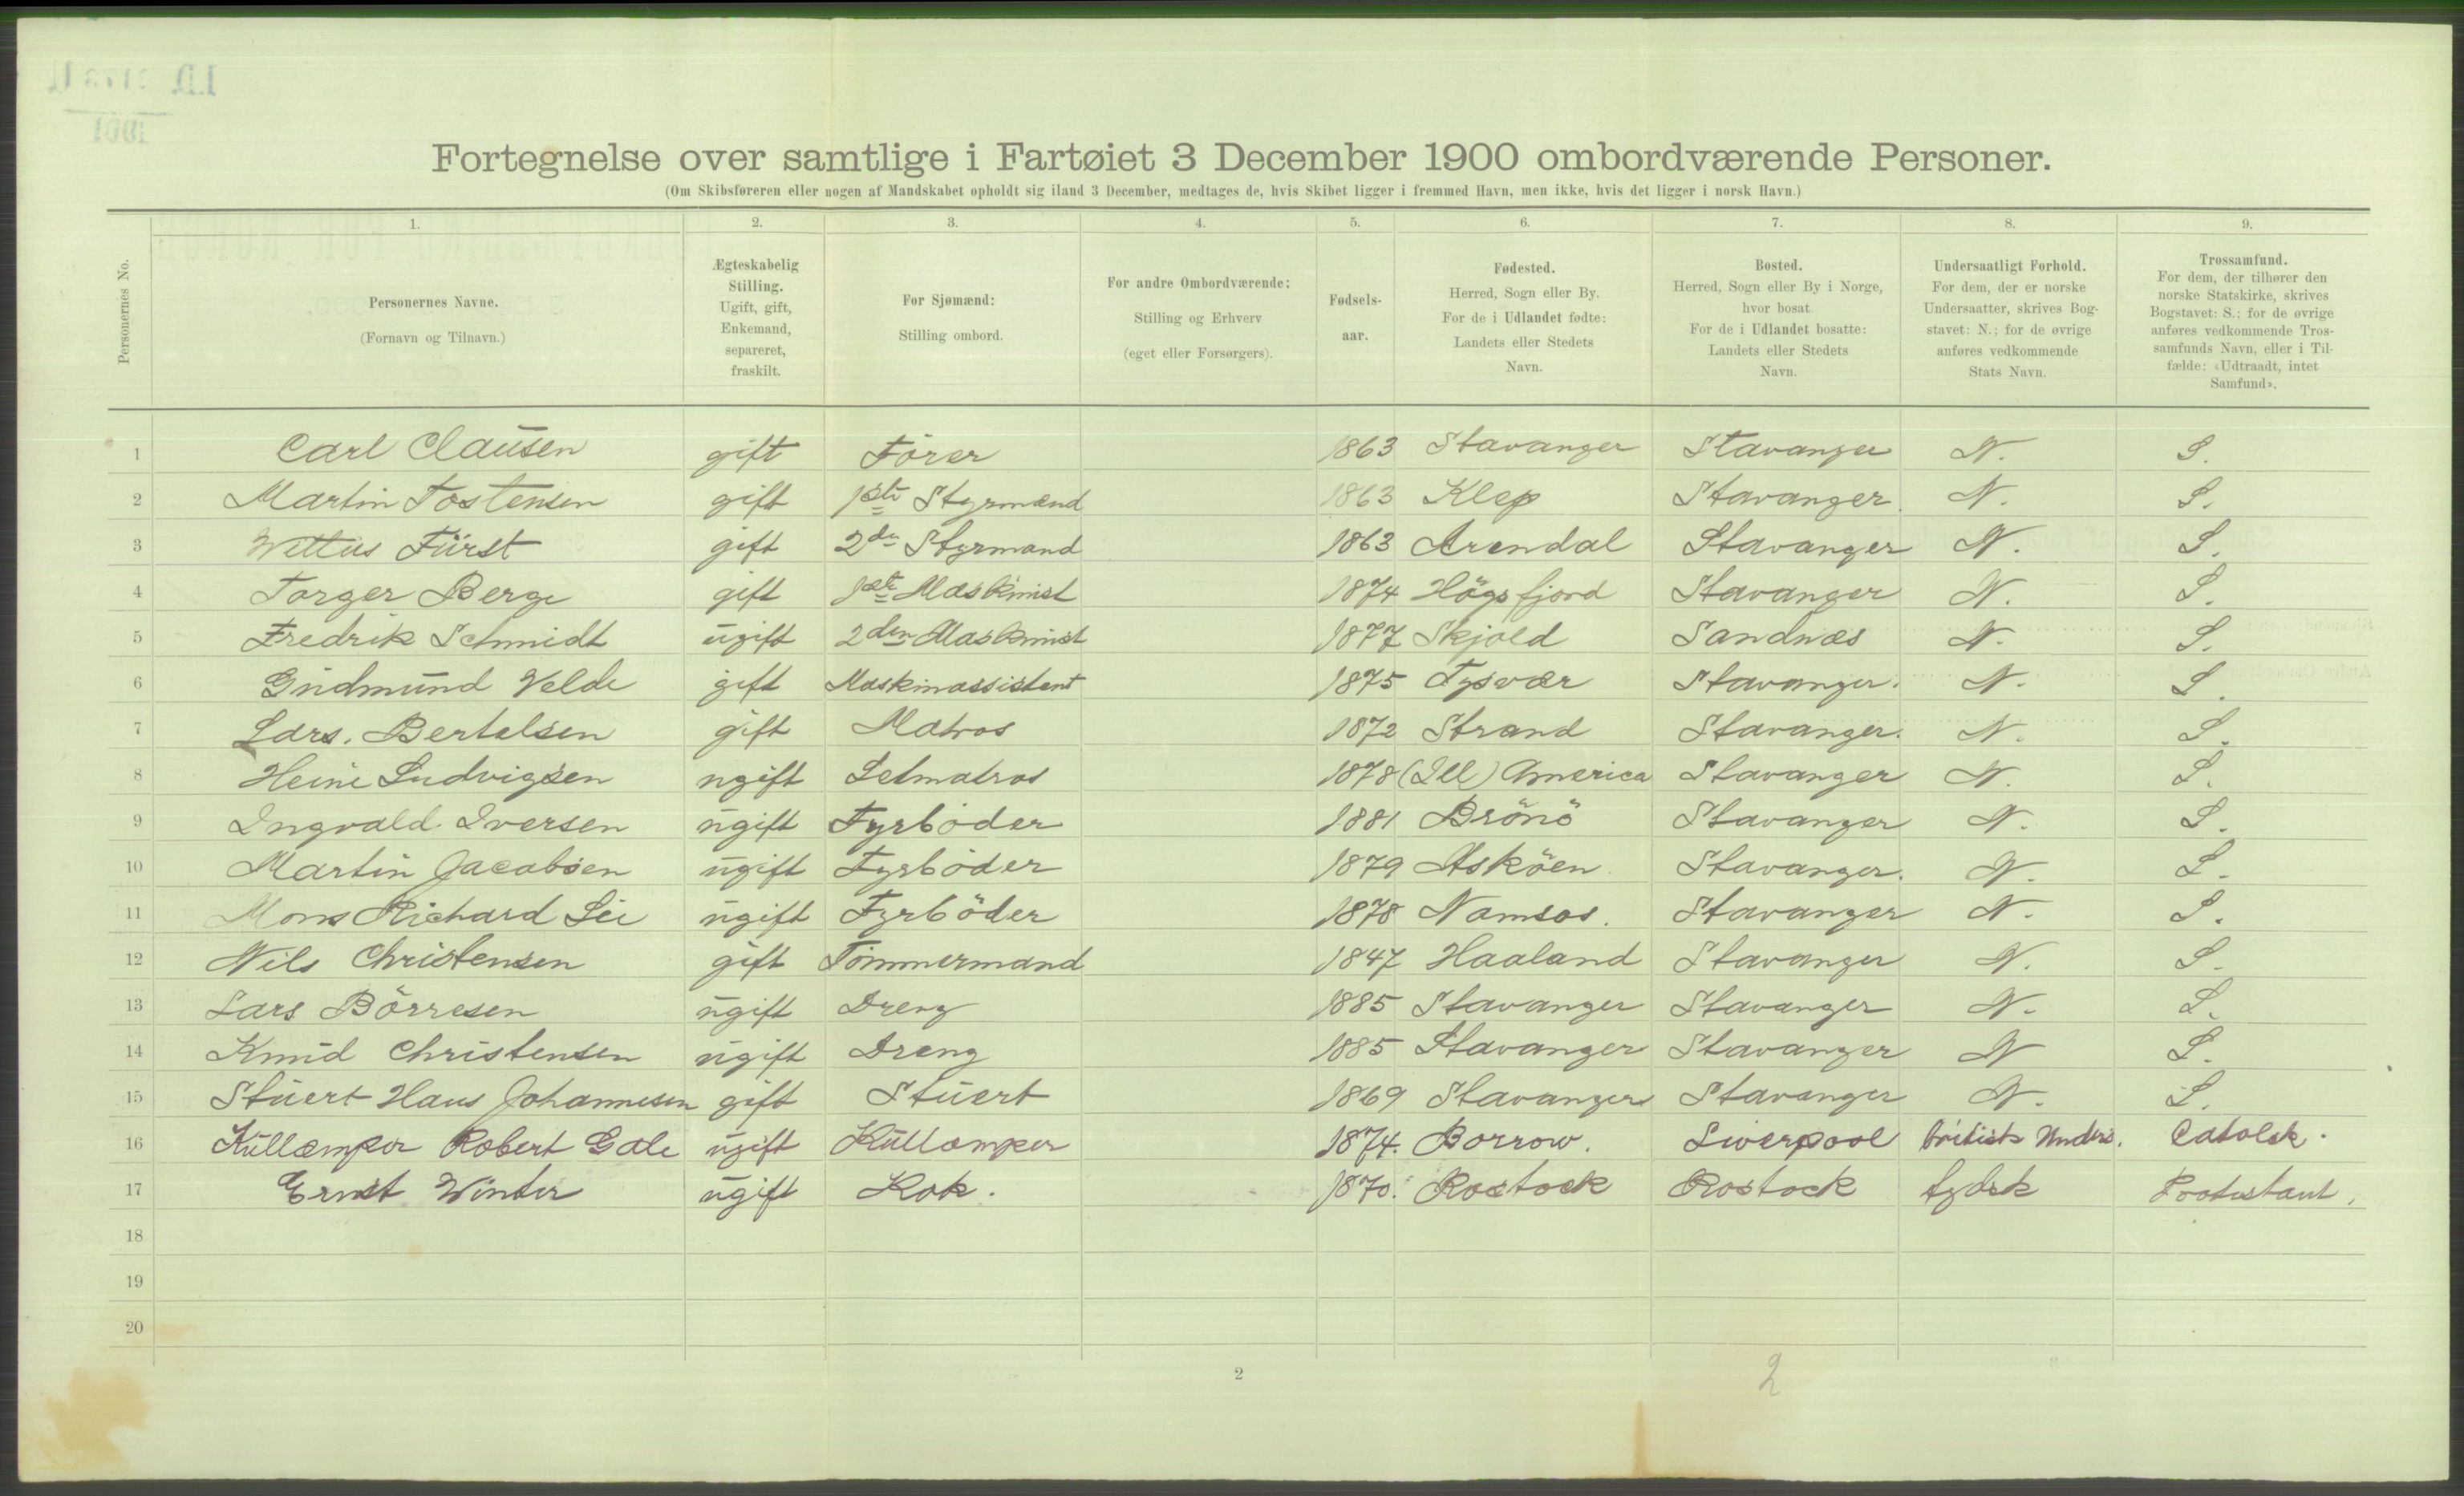 Fortegnelse over samtlige i Fartøiet 3 December 1900 ombordværende Personer.
(Om Skibsføreren eller nogen af Mandskabet opholdt sig iland 3 December, medtages de, hvis Skibet ligger i fremmed Havn, men ikke, hvis det ligger i norsk Havn.)
Personernes No.
1. 2. 3. 4. 5. 6. 7. 8. 9.
Personernes Navne.
(Fornavn og Tilnavn.)
Ægteskabelig
Stilling.
Ugift, gift,
Enkemand,
separeret,
fraskilt.
For Sjømænd:
Stilling ombord.
For andre Ombordværende:
Stilling og Erhverv
(eget eller Forsørgers).
Fødsels-
aar.
Fødested.
Herred, Sogn eller By.
For de i Udlandet fødte:
Landets eller Stedets
Navn.
Bosted.
Herred, Sogn eller By i Norge,
hvor bosat.
For de i Udlandet bosatte:
Landets eller Stedets
Navn.
Undersaatligt Forhold.
For dem, der er norske
Undersaatter, skrives Bog-
stavet: N.; for de øvrige
anføres vedkommende
Stats Navn.
Trossamfund.
For dem, der tilhører den
norske Statskirke, skrives
Bogstavet: S.; for de øvrige
anføres vedkommende Tros-
samfunds Navn, eller i Til-
fælde: «Udtraadt, intet
Samfund».
1 Carl Clausen gift Förer 1863 Stavanger Stavanger N. S.
2 Martin Tostensen gift 1ste Styrmand 1863 Klep Stavanger. N. S.
3 Wettus Fürst gift 2den Styrmand 1863 Arendal Stavanger N. S.
4 Torger Berge gift 1ste Maskinist 1874 Högsfjord Stavanger N. S.
5 Fredrik Schmidt ugift 2den Maskinist 1877 Skjold Sandnæs N. S.
6 Gudmund Velde gift Maskinassistent 1875 Tysvær Stavanger. N. S.
7 Lars. Bertelsen gift Matros 1872 Strand Stavanger. N. S.
8 Heine Ludvigsen ugift Letmatros 1878 (Ill) America Stavanger N. S.
9 Ingvald Iversen ugift Fyrböder 1881 Brönö Stavanger N. S.
10 Martin Jacobsen ugift Fyrböder 1879 Asköen Stavanger. N. S.
11 Mons Richard Lie ugift Fyrböder 1878 Namsos. Stavanger N. S.
12 Nils Christensen gift Tömmermand 1847 Haaland Stavanger N. S.
13 Lars Börresen ugift Dreng 1885 Stavanger Stavanger N. S.
14 Knud Christensen ugift Dreng 1885 Stavanger Stavanger N S.
15 Stuert Hans Johannesen gift Stuert 1869 Stavanger Stavanger N. S.
16 Kullemper Robert Gale ugift Kullemper 1874. Borrow. Liverpool britisk Unders. Catolsk.
17 Ernst Winter ugift Kok. 1870. Rostock Rostock tydsk Protestant.
18
19
20
2
2